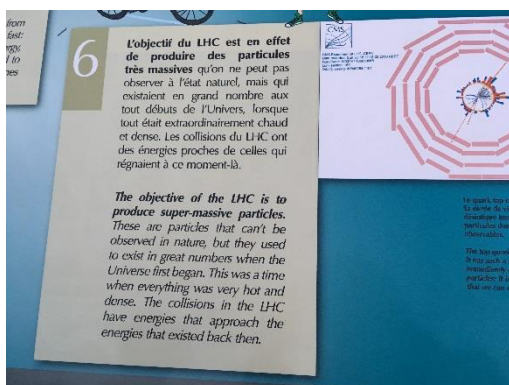 from
fast:
6
L'objectif du LHC est en effet
de produire des particules
très massives qu'on ne peut pas
observer à l'état naturel, mais qui
existaient en grand nombre aux
tout débuts de l'Univers, lorsque
tout était extraordinairement chaud
et dense. Les collisions du LHC ont
des énergies proches de celles qui
régnaient à ce moment-là.
The objective of the LHC is to
produce super-massive particles.
These are particles that can't be
observed in nature, but they used
to exist in great numbers when the
Universe first began. This was a time
when everything was very hot and
dense. The collisions in the LHC
have energies that approach the
energies that existed back then.
CMS
Le quark top
particules
The top quark
immediately
particles. It
that we can